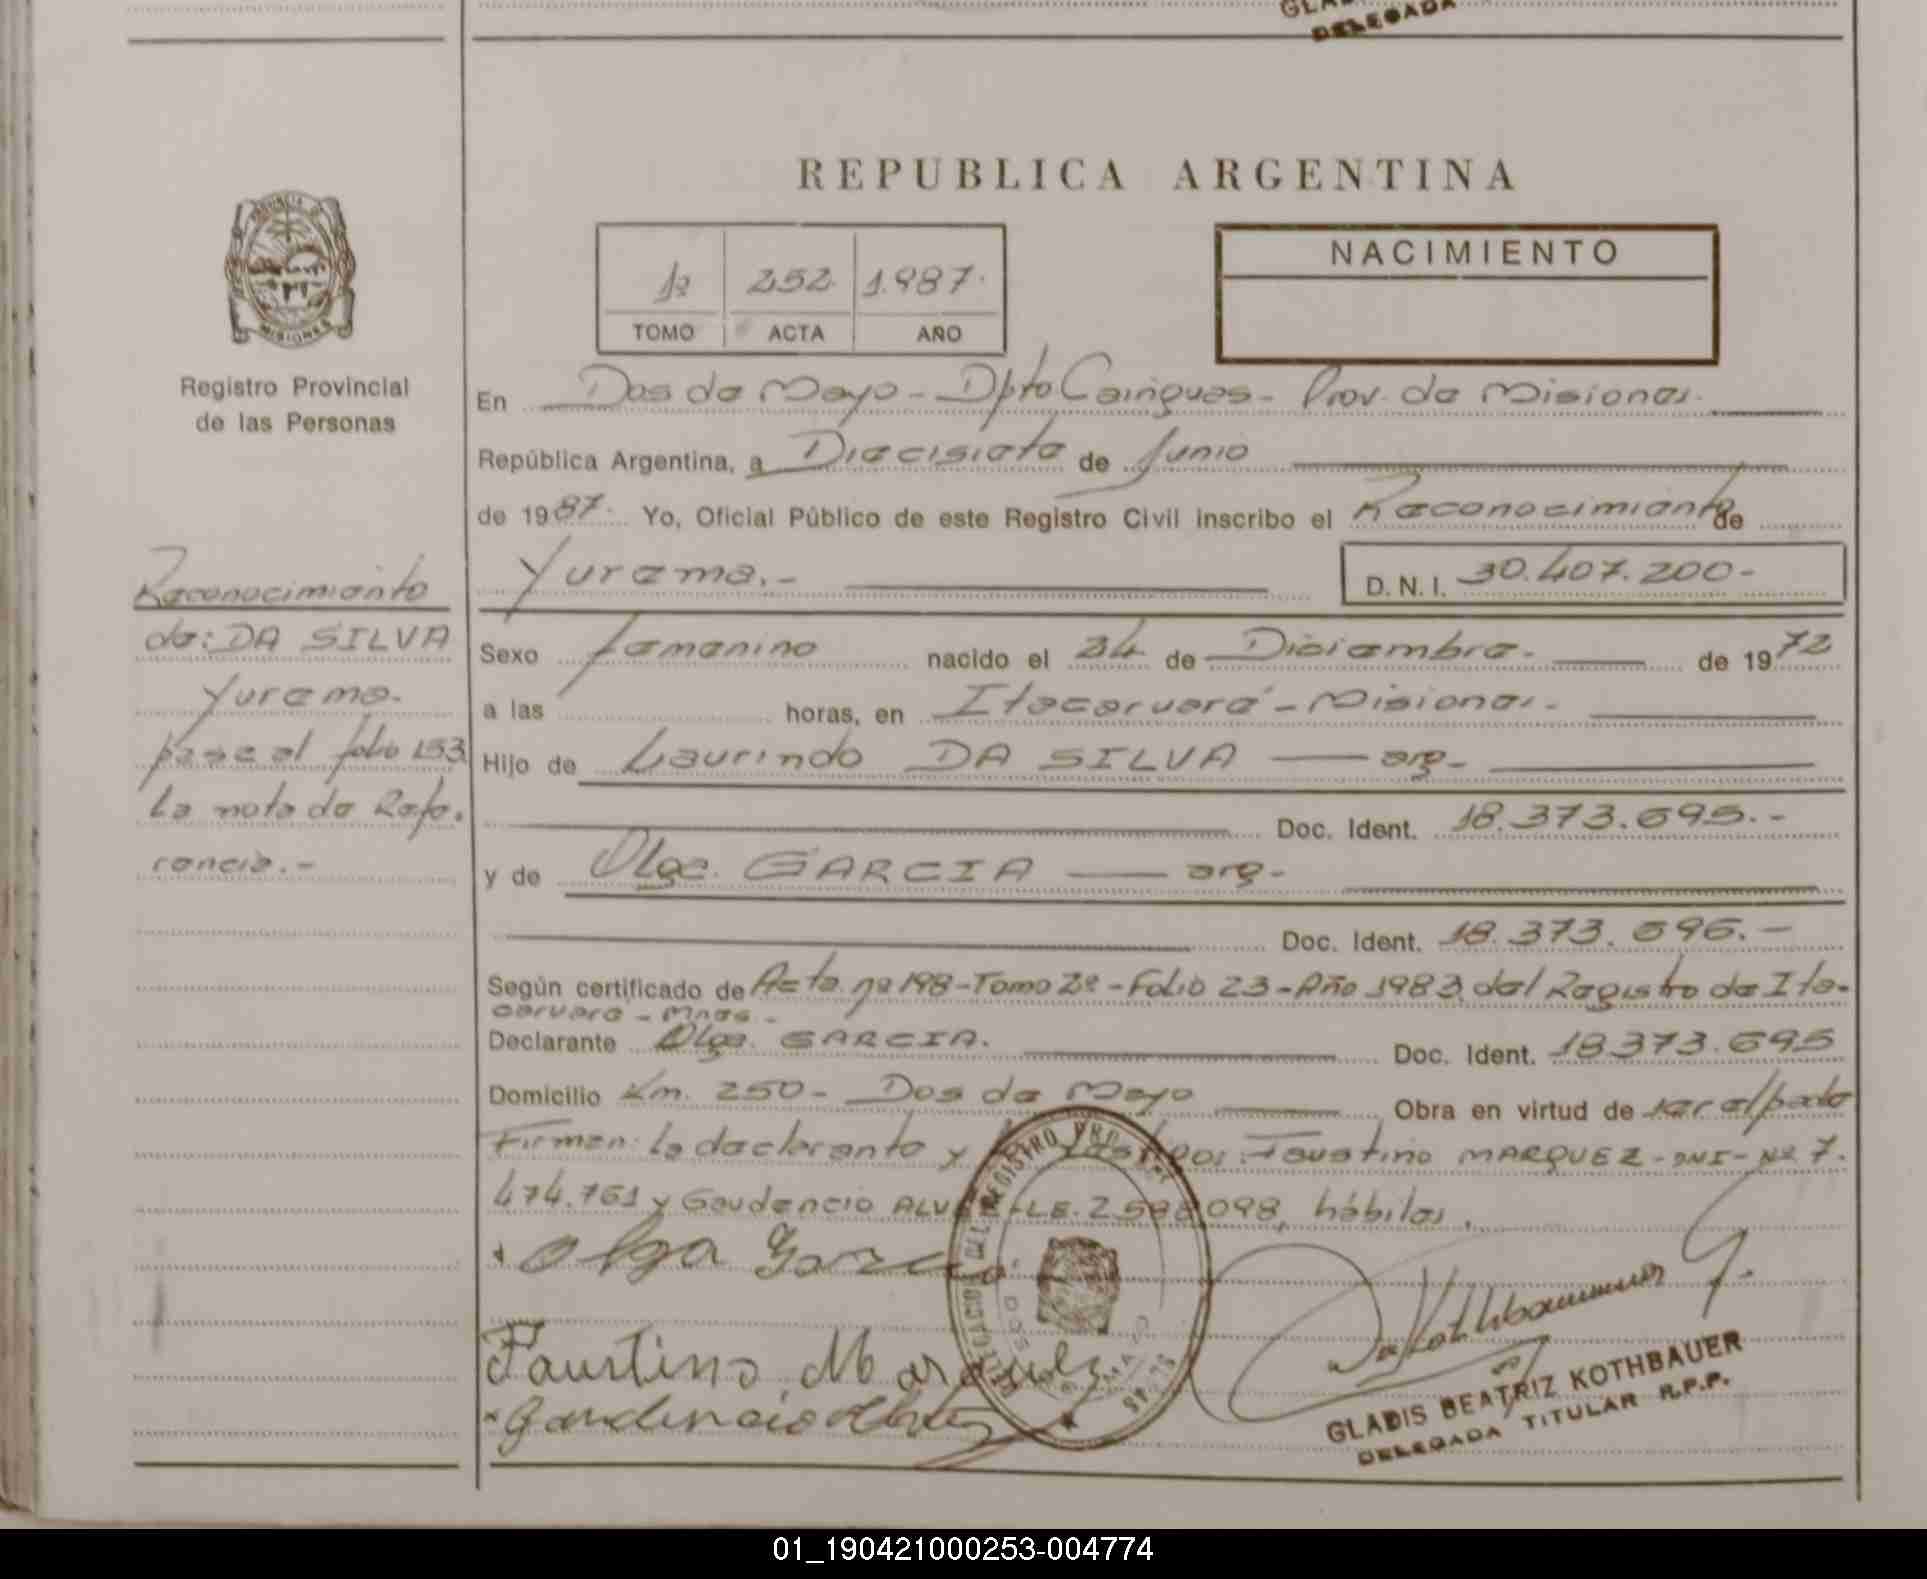 DELEGADA
REPUBLICA ARGENTINA
1º 252 1.987.
TOMO ACTA AÑO
NACIMIENTO
PROVINCIA DE MISIONES
Registro Provincial
de las Personas
En Dos de Mayo - Dpto Cainguas - Prov. de Misiones.
República Argentina, a Diecisiete de Junio
de 1987. Yo, Oficial Público de este Registro Civil inscribo el Reconocimiento de
Yurema.-
D. N. I. 30.407.200-
Reconocimiento
de: DA SILVA
Yurema.
pase al folio 153
La nota de Refe.
rencia.-
Sexo femenino nacido el 24 de Diciembre. de 1972
a las horas, en Itacaruaré - Misiones.
Hijo de Laurindo DA SILVA — arg-
Doc. Ident. 18.373.695.-
y de Olga GARCIA — arg-
Doc. Ident. 18.373.696.-
Según certificado de Acta nº 198-Tomo 2º-Folio 23-Año 1983 del Registro de Ita-
caruare - Mnes.-
Declarante Olga GARCIA. Doc. Ident. 18373.695
Domicilio Km. 250- Dos de Mayo Obra en virtud de ser alfabeta
Firman: la declarante y testigos: Faustino MARQUEZ-DNI-Nº 7.
474.761 y Gaudencio LE. 2588098, hábiles.
Olga Garcia
Faustino Marquez
Gaudencio
Kothbauer
GLADIS BEATRIZ KOTHBAUER
DELEGADA TITULAR R.P.P.
01_190421000253-004774